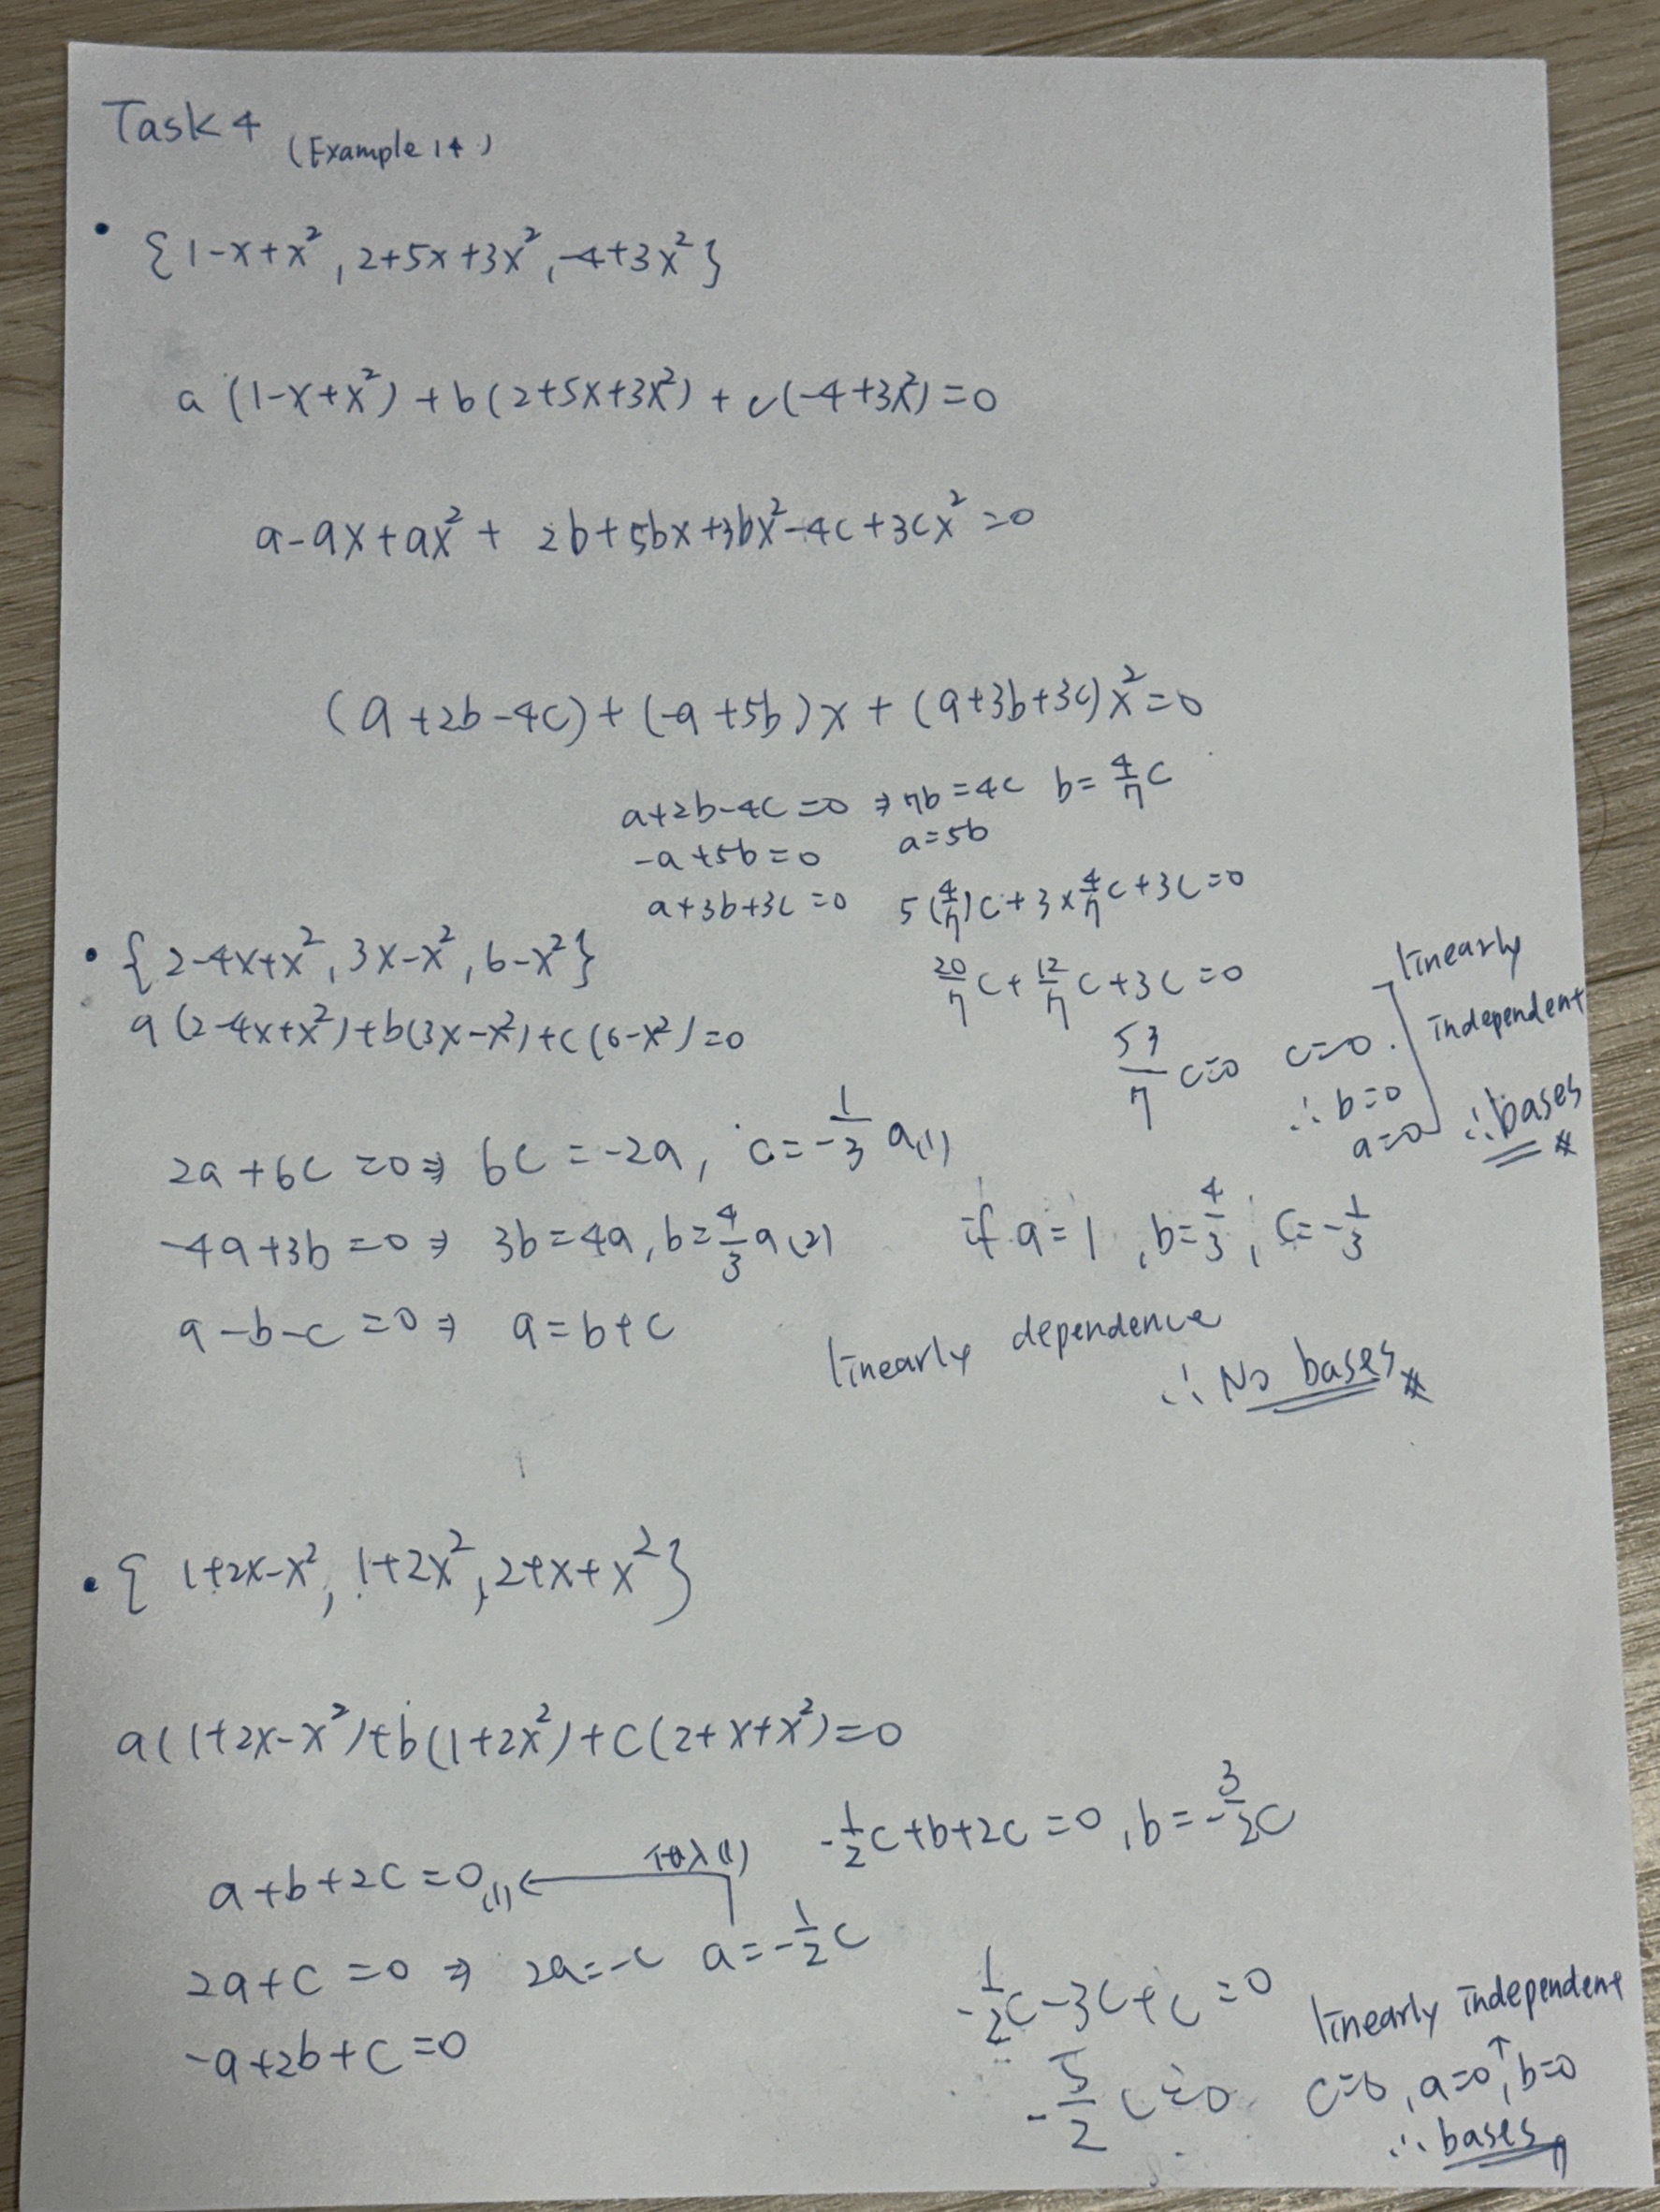 Task 4 (Example 14)
• {1-x+x², 2+5x+3x², -4+3x²}
a (1-x+x²) + b(2+5x+3x²) + c(-4+3x²)=0
a-ax+ax²+ 2b+5bx+3bx²-4c+3cx²=0
(a+2b-4c)+(-a+5b)x+(a+3b+3c)x²=0
a+2b-4c=0 ⇒ 7b=4c b=4/7 c
-a+5b=0 a=5b
a+3b+3c=0 5(4/7)c+3×4/7 c+3c=0
20/7 c+12/7 c+3c=0
53/7 c=0 c=0.
∴ b=0
a=0
linearly
independent
∴ bases
• {2-4x+x², 3x-x², 6-x²}
a(2-4x+x²)+b(3x-x²)+c(6-x²)=0
2a+6c=0 ⇒ 6c=-2a, c=-1/3 a (1)
-4a+3b=0 ⇒ 3b=4a, b=4/3 a (2) if a=1, b=4/3, c=-1/3
a-b-c=0 ⇒ a=b+c
linearly dependence
∴ No bases
• {1+2x-x², 1+2x², 2+x+x²}
a(1+2x-x²)+b(1+2x²)+c(2+x+x²)=0
a+b+2c=0 (1) 代入(1) -1/2 c+b+2c=0, b=-3/2 c
2a+c=0 ⇒ 2a=-c a=-1/2 c
-a+2b+c=0
-1/2 c-3c+c=0
-5/2 c=0 c=0, a=0, b=0
↑
linearly independent
∴ bases